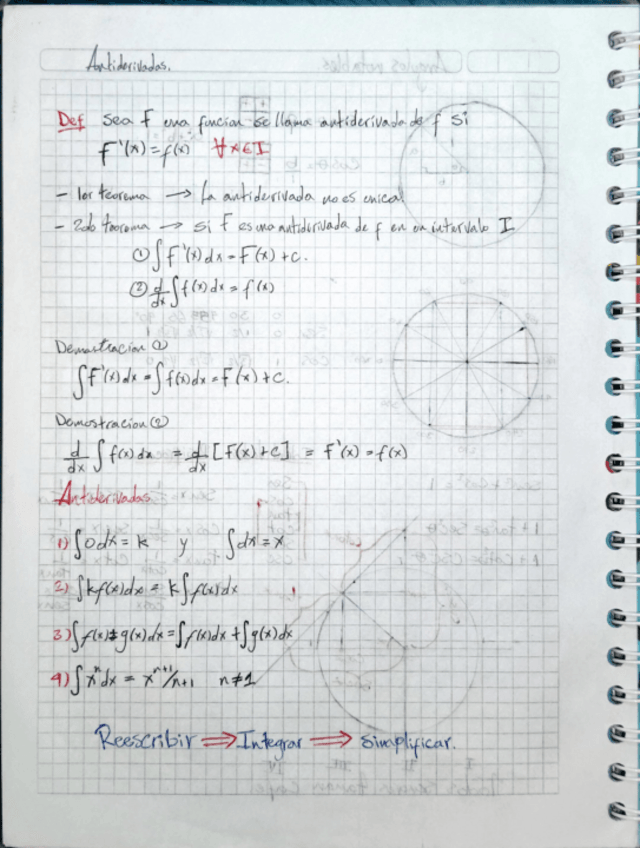 Antiderivadas.
Def Sea F una funcion se llama antiderivada de f si
F'(x) = f(x) ∀ x ∈ I
- 1er teorema → La antiderivada no es unica!
- 2do teorema → si F es una antiderivada de f en un intervalo I
① ∫F'(x)dx = F(x) + c.
② d/dx ∫f(x)dx = f(x)
Demostracion ①
∫F'(x)dx = ∫f(x)dx = F(x) + c.
Demostracion ②
d/dx ∫f(x)dx = d/dx [F(x) + c] = F'(x) = f(x)
Antiderivadas
1) ∫0dx = k y ∫dx = x
2) ∫kf(x)dx = k∫f(x)dx
3) ∫f(x)±g(x)dx = ∫f(x)dx ± ∫g(x)dx
4) ∫xⁿdx = xⁿ⁺¹/n+1 n≠1
Reescribir ⇒ Integrar ⇒ Simplificar.